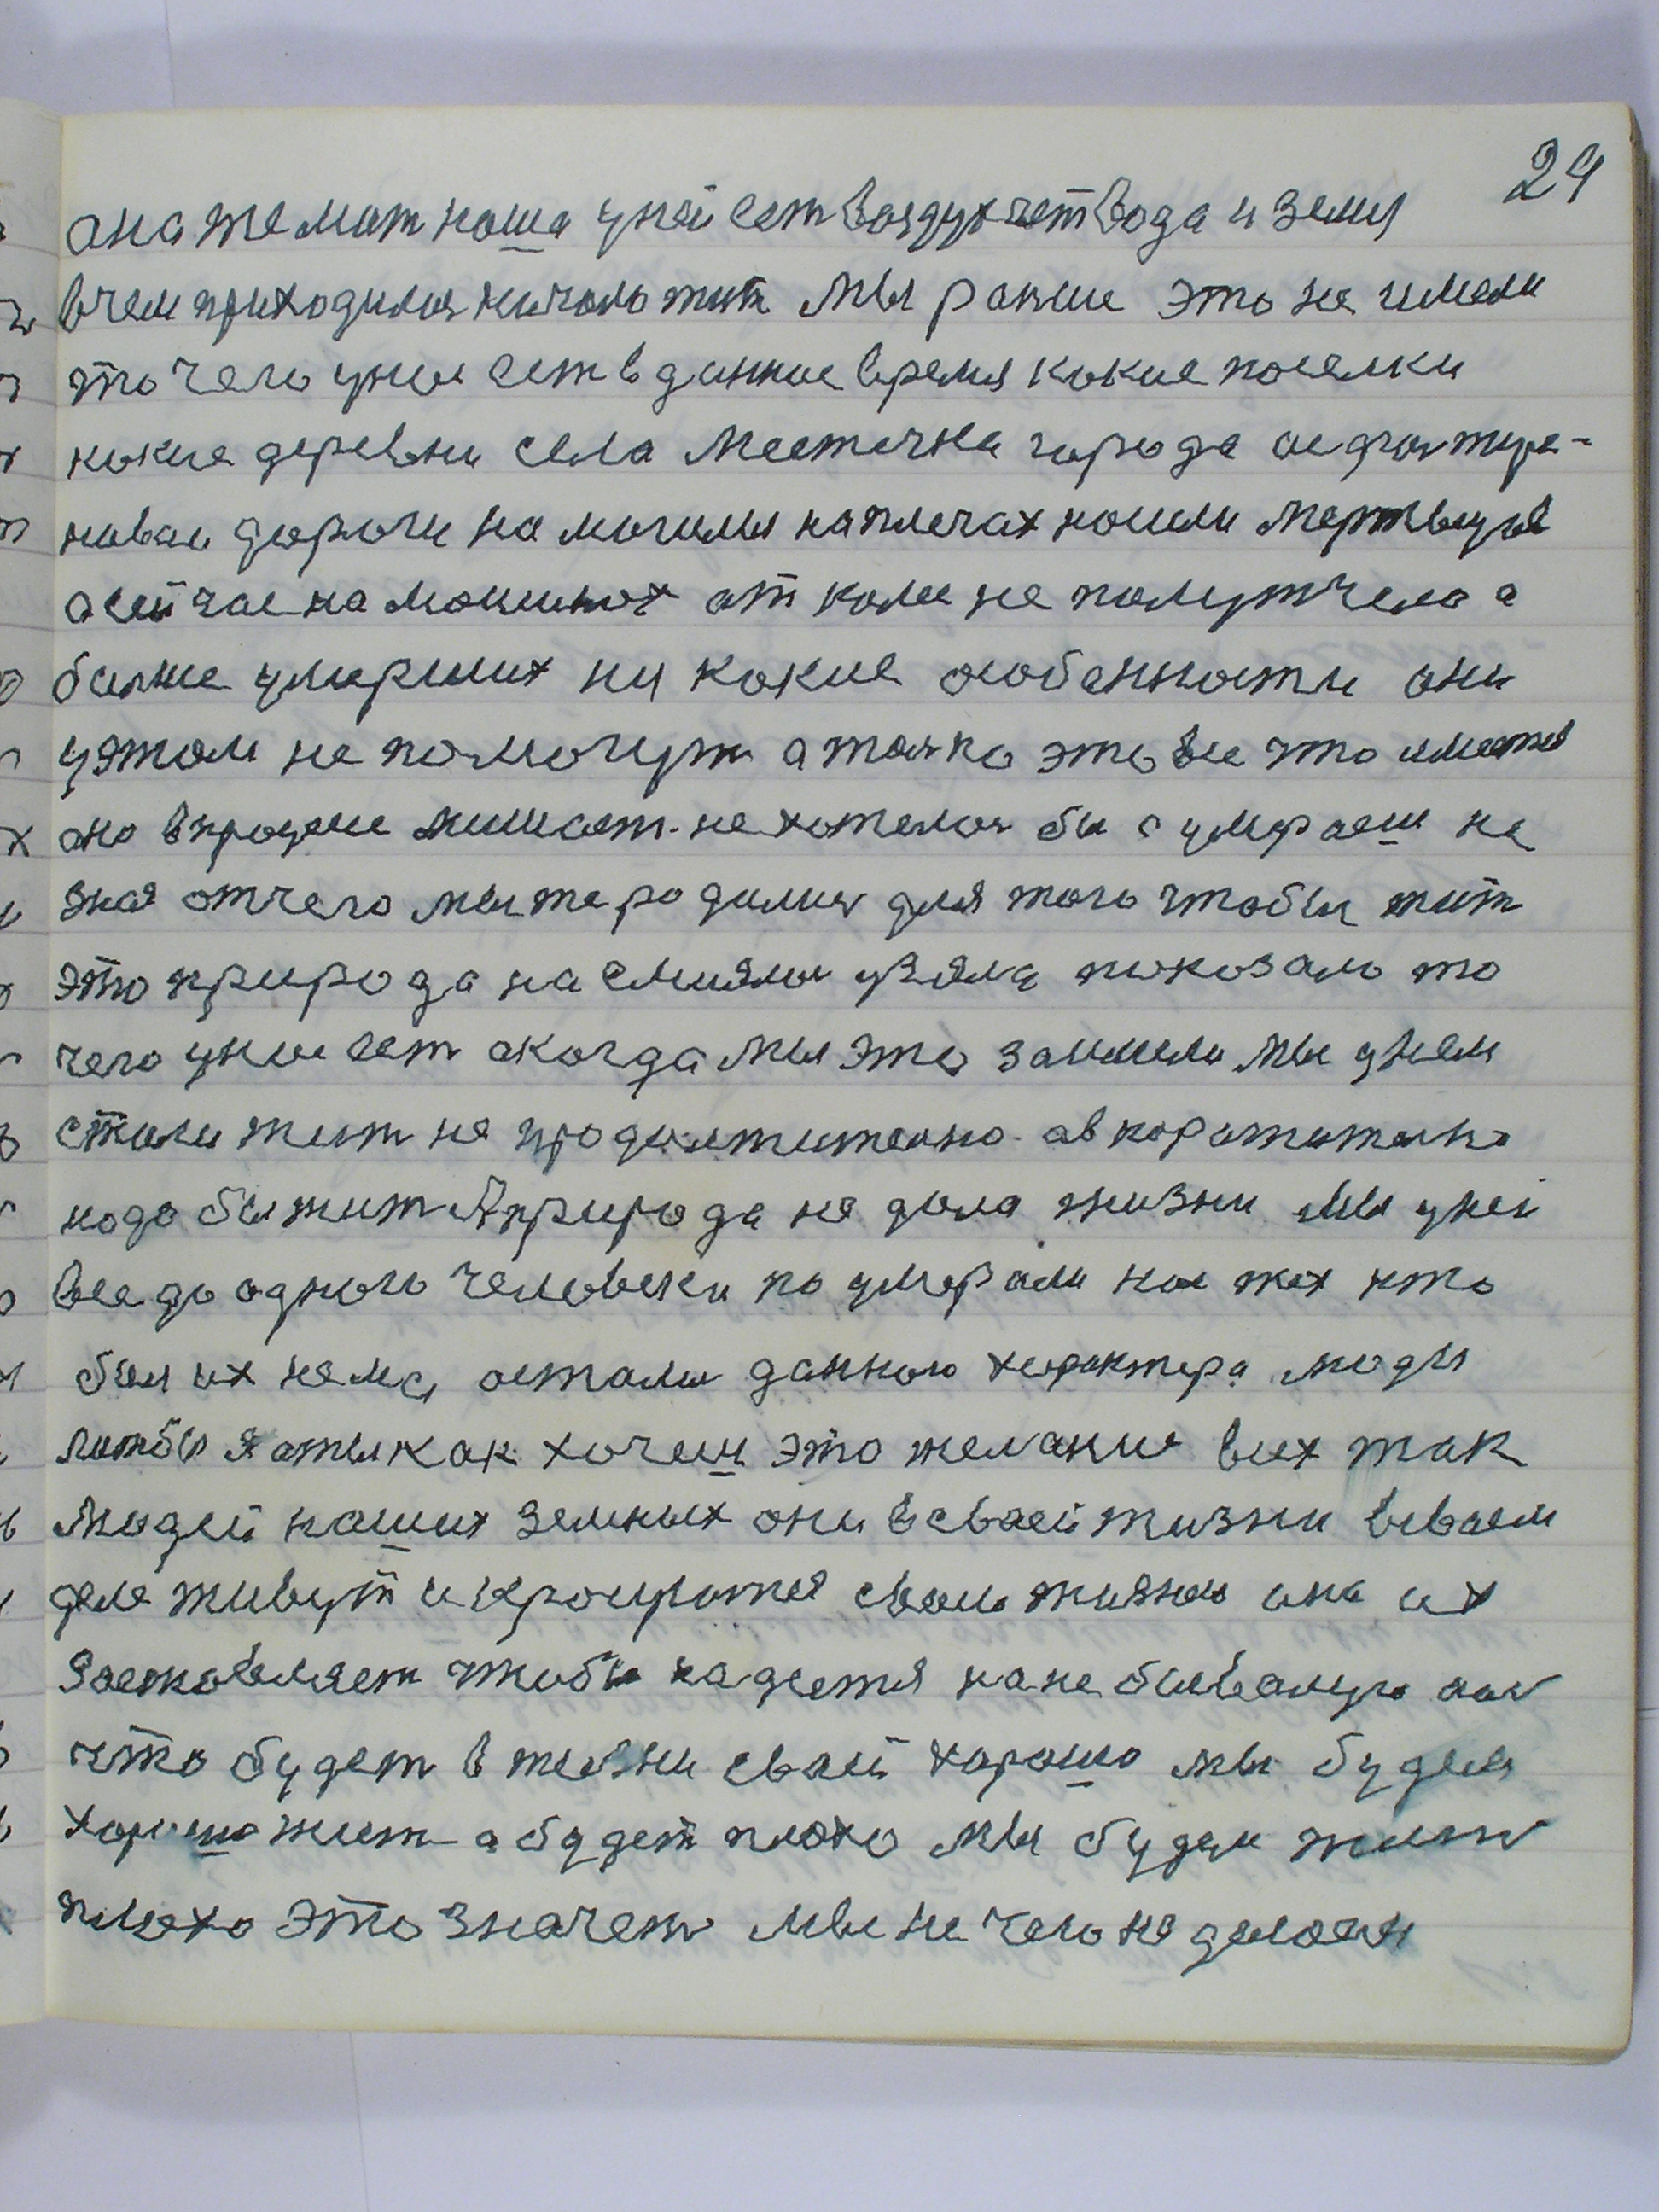 29
она же мат наша уней ест воздух ест вода и земля
вчем приходилос начало жит мы ранше это не имели
то чего унас ест вданное время какие поселки
какие деревни села местечка города асфалтиро-
ваные дороги на могилы наплечах носили мертвецов
асейчас на машинах от коле не полутчело а
болше умерших ни какие особенности они
уэтом не помогут а толко это все что имеется
оно впроцесе лишает не хотелос бы а умраеш не
зная отчего мы же родилис для того чтобы жит
это природа насмиялас узяла показало то
чего унас ест акогда мы это заимели мы унем
стали жит не продолжително авкоратително
надо бы жит Априрода не дала жизни мы уней
все до одного человека по умерали нас тех кто
был их нема осталис данного характера люди
хотбы я аты как хочеш это желание всех так
людей наших земных они всваей жизни всваем
деле живут и кроирутся сваею жизню она их
заставляет чтобы надеятся нанебывалую
что будет вжизни сваей харашо мы будем
харашо жит а будет плохо мы будем жит
плохо это значет мы не чего не делаем